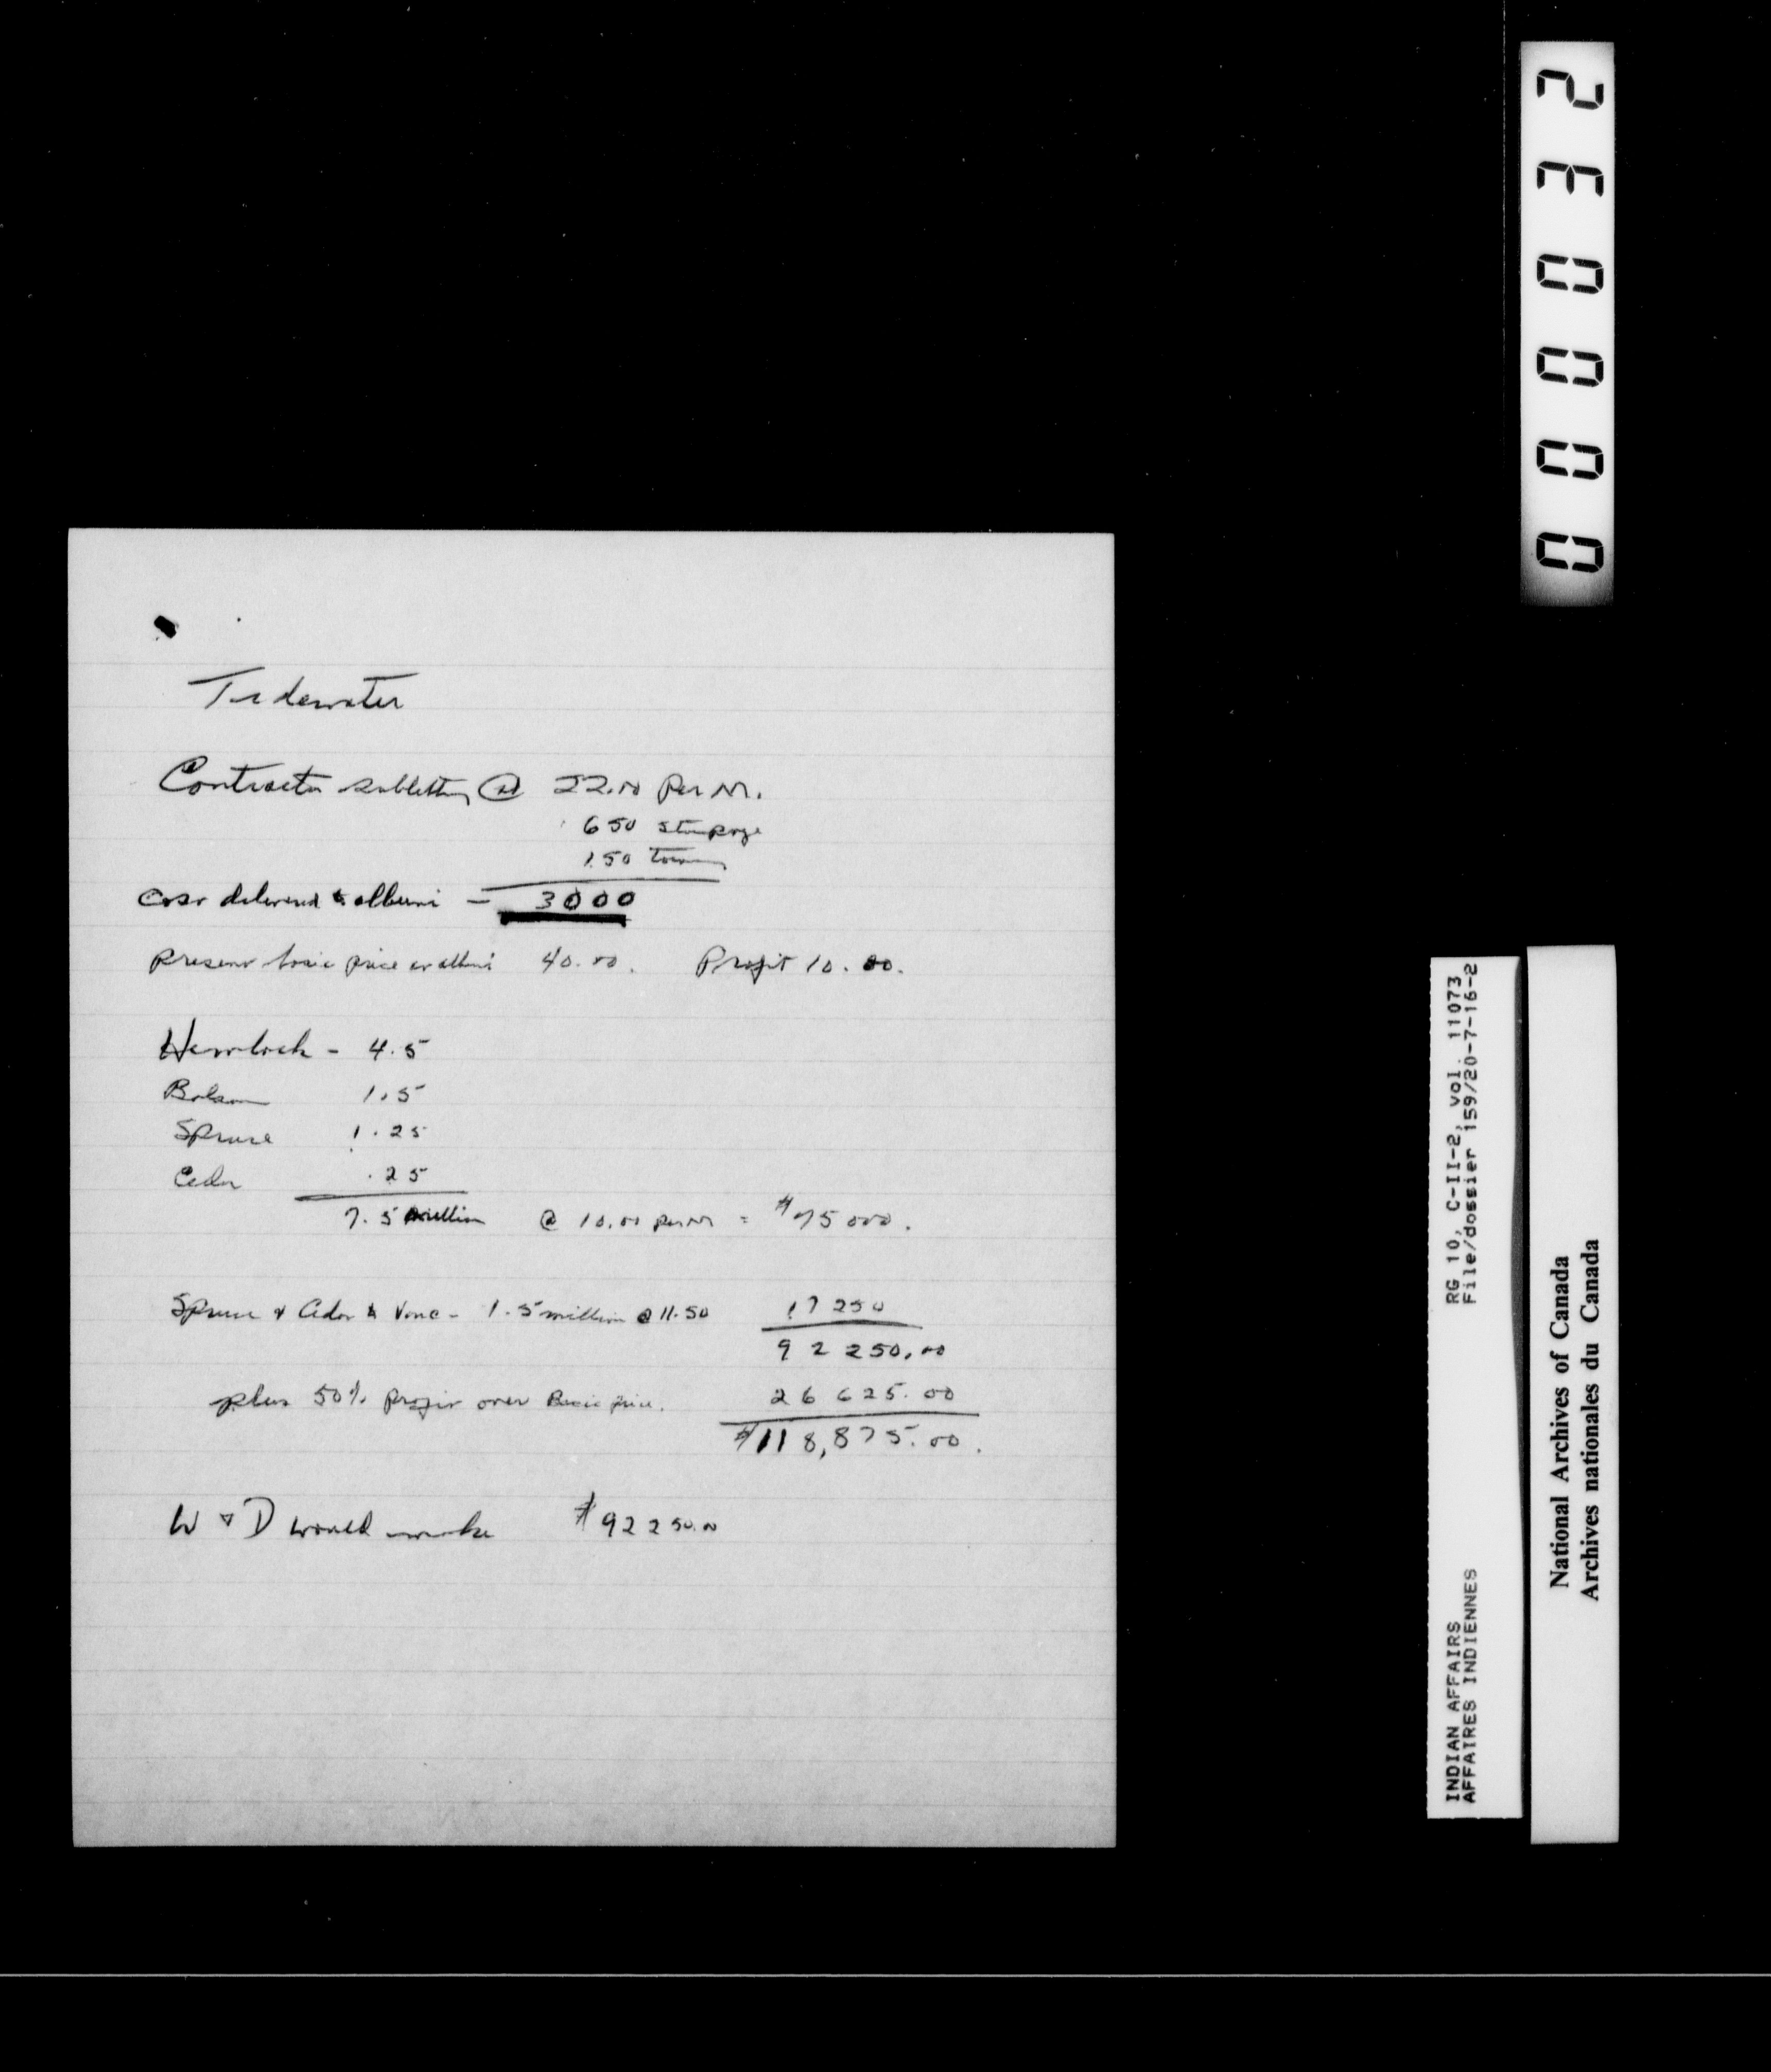 Tidewater
Contractor subletting @ 22.00 Per M.
6 50 stumpage
1.50 towing
Cost delivered to alberni — 3000
present basic price at alberni 40.00. Profit 10.00.
Hemlock - 4.5
Balsam 1.5
Spruce 1.25
Cedar .25
7.5 million @ 10.00 per M = $75 000.
Spruce & Cedar to Vanc - 1.5 million @ 11.50 17 250
92 250.00
plus 50% profit over Basic price. 26 625.00
$118,875.00.
W & D would make $92 250.00
000032
RG 10, C-II-2, vol. 11073,
File/dossier 159/20-7-16-2
INDIAN AFFAIRS
AFFAIRES INDIENNES
National Archives of Canada
Archives nationales du Canada